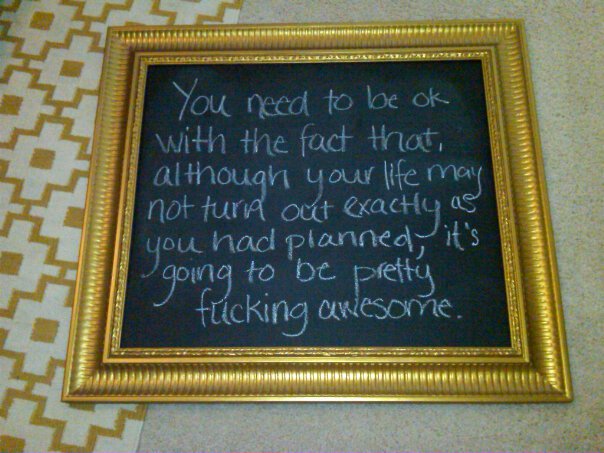 You need to be ok
with the fact that,
although your life may
not turn out exactly as
you had planned, it's
going to be pretty
fucking awesome.